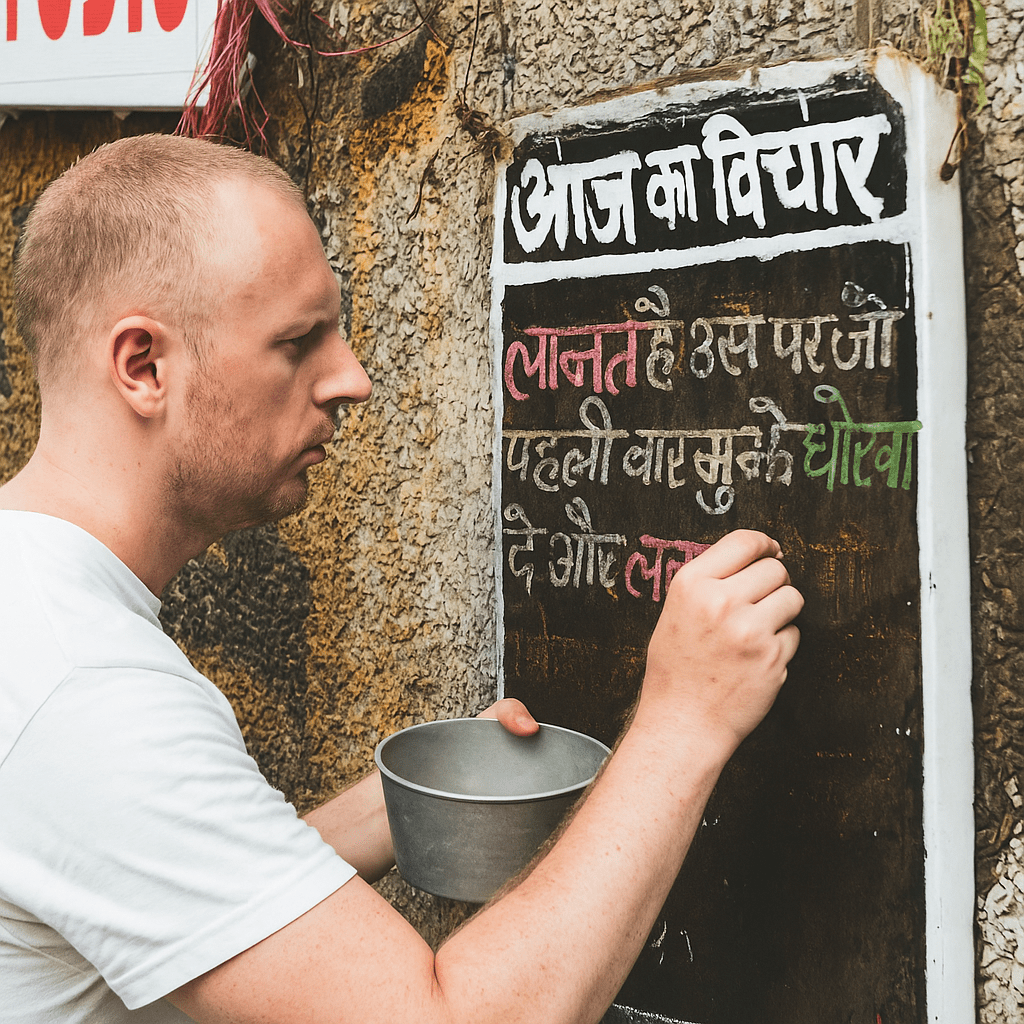 आज का विचार
लानत है उस पर जो
पहली वार मुझे धोरवा
दे और